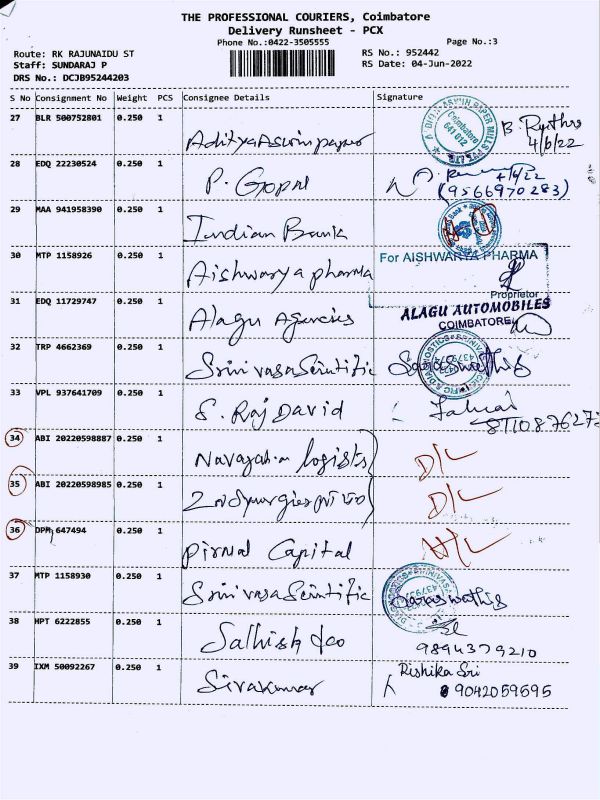 THE PROFESSIONAL COURIERS, Coimbatore
Delivery Runsheet - PCX
Phone No.:0422-3505555
Page No.:3
Route: RK RAJUNAIDU ST
RS No.: 952442
Staff: SUNDARAJ P
RS Date: 04-Jun-2022
DRS No.: DCJB95244203
S No Consignment No Weight PCS Consignee Details Signature
27 BLR 500752801 0.250 1 Aditya Aswin paper 4/6/22
Coimbatore 641 012
28 EDQ 22230524 0.250 1 P. Gopal 4/6/22
(9566970283)
29 MAA 941958390 0.250 1 Indian Bank
30 MTP 1158926 0.250 1 Aishwarya pharma For AISHWARYA PHARMA
Proprietor
31 EDQ 11729747 0.250 1 Alagu Agencies ALAGU AUTOMOBILES
COIMBATORE
32 TRP 4662369 0.250 1 Srinivasa Scintific Saraswathi
33 VPL 937641709 0.250 1 S. Raj David
34 ABI 20220598887 0.250 1 logists D/L
35 ABI 20220598985 0.250 1 D/L
36 DPM 647494 0.250 1 Pirnal Capital
37 MTP 1158930 0.250 1 Srinivasa Scintific Saraswathi
38 HPT 6222855 0.250 1 Sathish &co
9894379210
39 IXM 50092267 0.250 1 Sivakumar Rishika Sri
9042059595